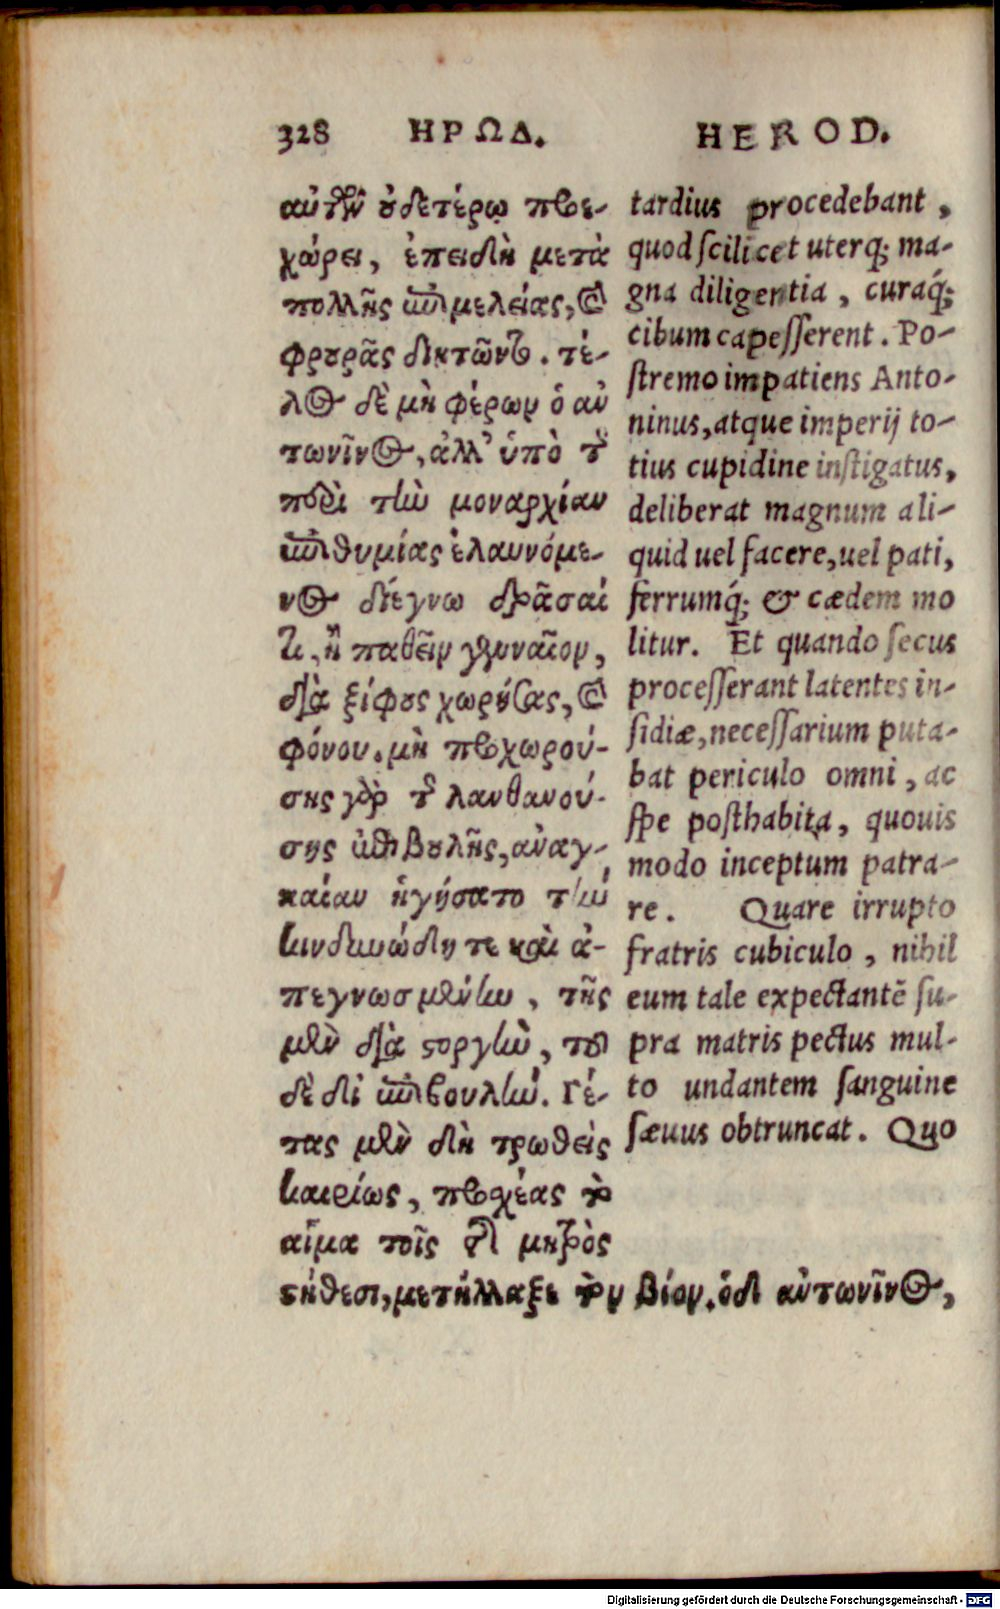 328 ΗΡΩΔ. HEROD.
αὐτῶν οὐδετέρῳ προε-
χώρει, ἐπειδὴ μετὰ
πολλῆς ἐπιμελείας, καὶ
φρουρᾶς διῃτῶντο. τέ-
λος δὲ μὴ φέρων ὁ ἀν
τωνῖνος, ἀλλ' ὑπὸ τῆς
περὶ τὴν μοναρχίαν
ἐπιθυμίας ἐλαυνόμε-
νος διέγνω δρᾶσαί
τι, ἢ παθεῖν γενναῖον,
διὰ ξίφους χωρήσας, καὶ
φόνου. μὴ προχωρού-
σης γὰρ τῆς λανθανού-
σης ἐπιβουλῆς, ἀναγ-
καίαν ἡγήσατο τὴν
κινδυνώδη τε καὶ ἀ-
πεγνωσμένην, τῆς
μὲν διὰ στοργὴν, τοῦ
δὲ δι' ἐπιβουλήν. Γέ-
τας μὲν δὴ τρωθεὶς
καιρίως, προχέας τὸ
αἷμα τοῖς τῆς μητρὸς
στήθεσι, μετήλλαξε τὸν βίον. ὁ δὲ ἀντωνῖνος,
tardius procedebant,
quod scilicet uterq; ma-
gna diligentia, curaq́;
cibum capesserent. Po-
stremo impatiens Anto-
ninus, atque imperij to-
tius cupidine instigatus,
deliberat magnum ali-
quid uel facere, uel pati,
ferrumq́; & cædem mo
litur. Et quando secus
processerant latentes in-
sidiæ, necessarium puta-
bat periculo omni, ac
spe posthabita, quouis
modo inceptum patra-
re. Quare irrupto
fratris cubiculo, nihil
eum tale expectantē su-
pra matris pectus mul-
to undantem sanguine
sæuus obtruncat. Quo
Digitalisierung gefördert durch die Deutsche Forschungsgemeinschaft - DFG